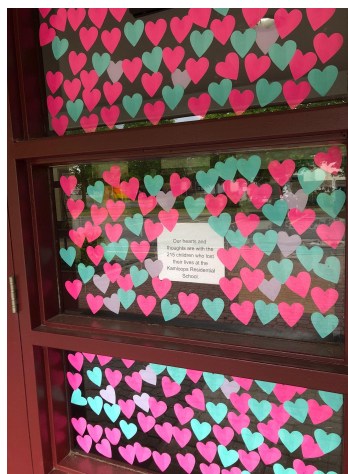 Our hearts and
thoughts are with the
215 children who lost
their lives at the
Kamloops Residential
School.